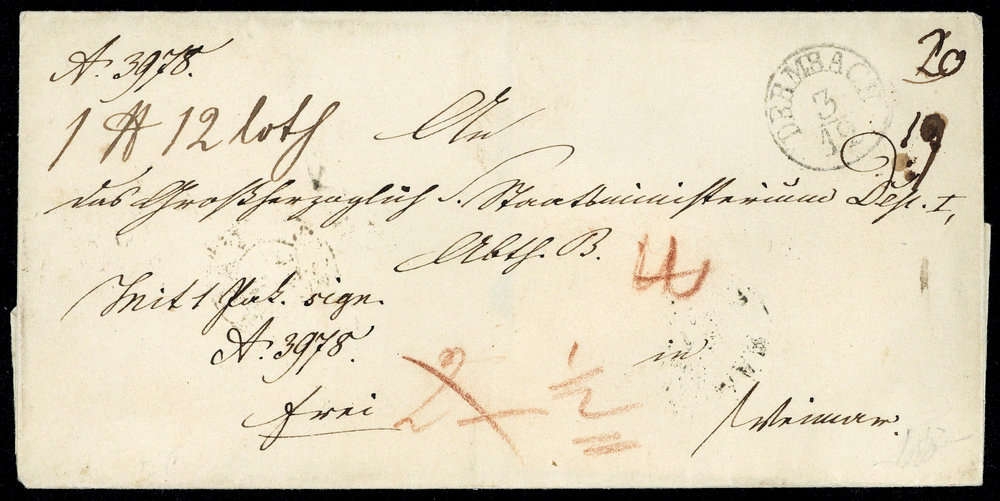 A. 3978.
20
DERMBACH
3
19
1 ℔ 12 loth
An
das Großherzoglich S. Staatsministerium Dep. I,
Abth. B.
Mit 1 Pak. sign.
A. 3978.
in
frei
2 1/2
Weimar.